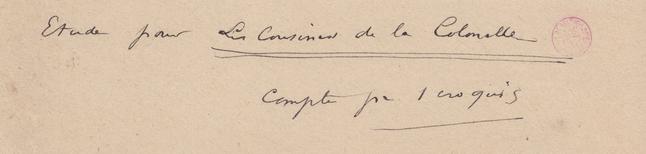 Etude pour Les Cousines de la Colonelle
Compte pr 1 croquis